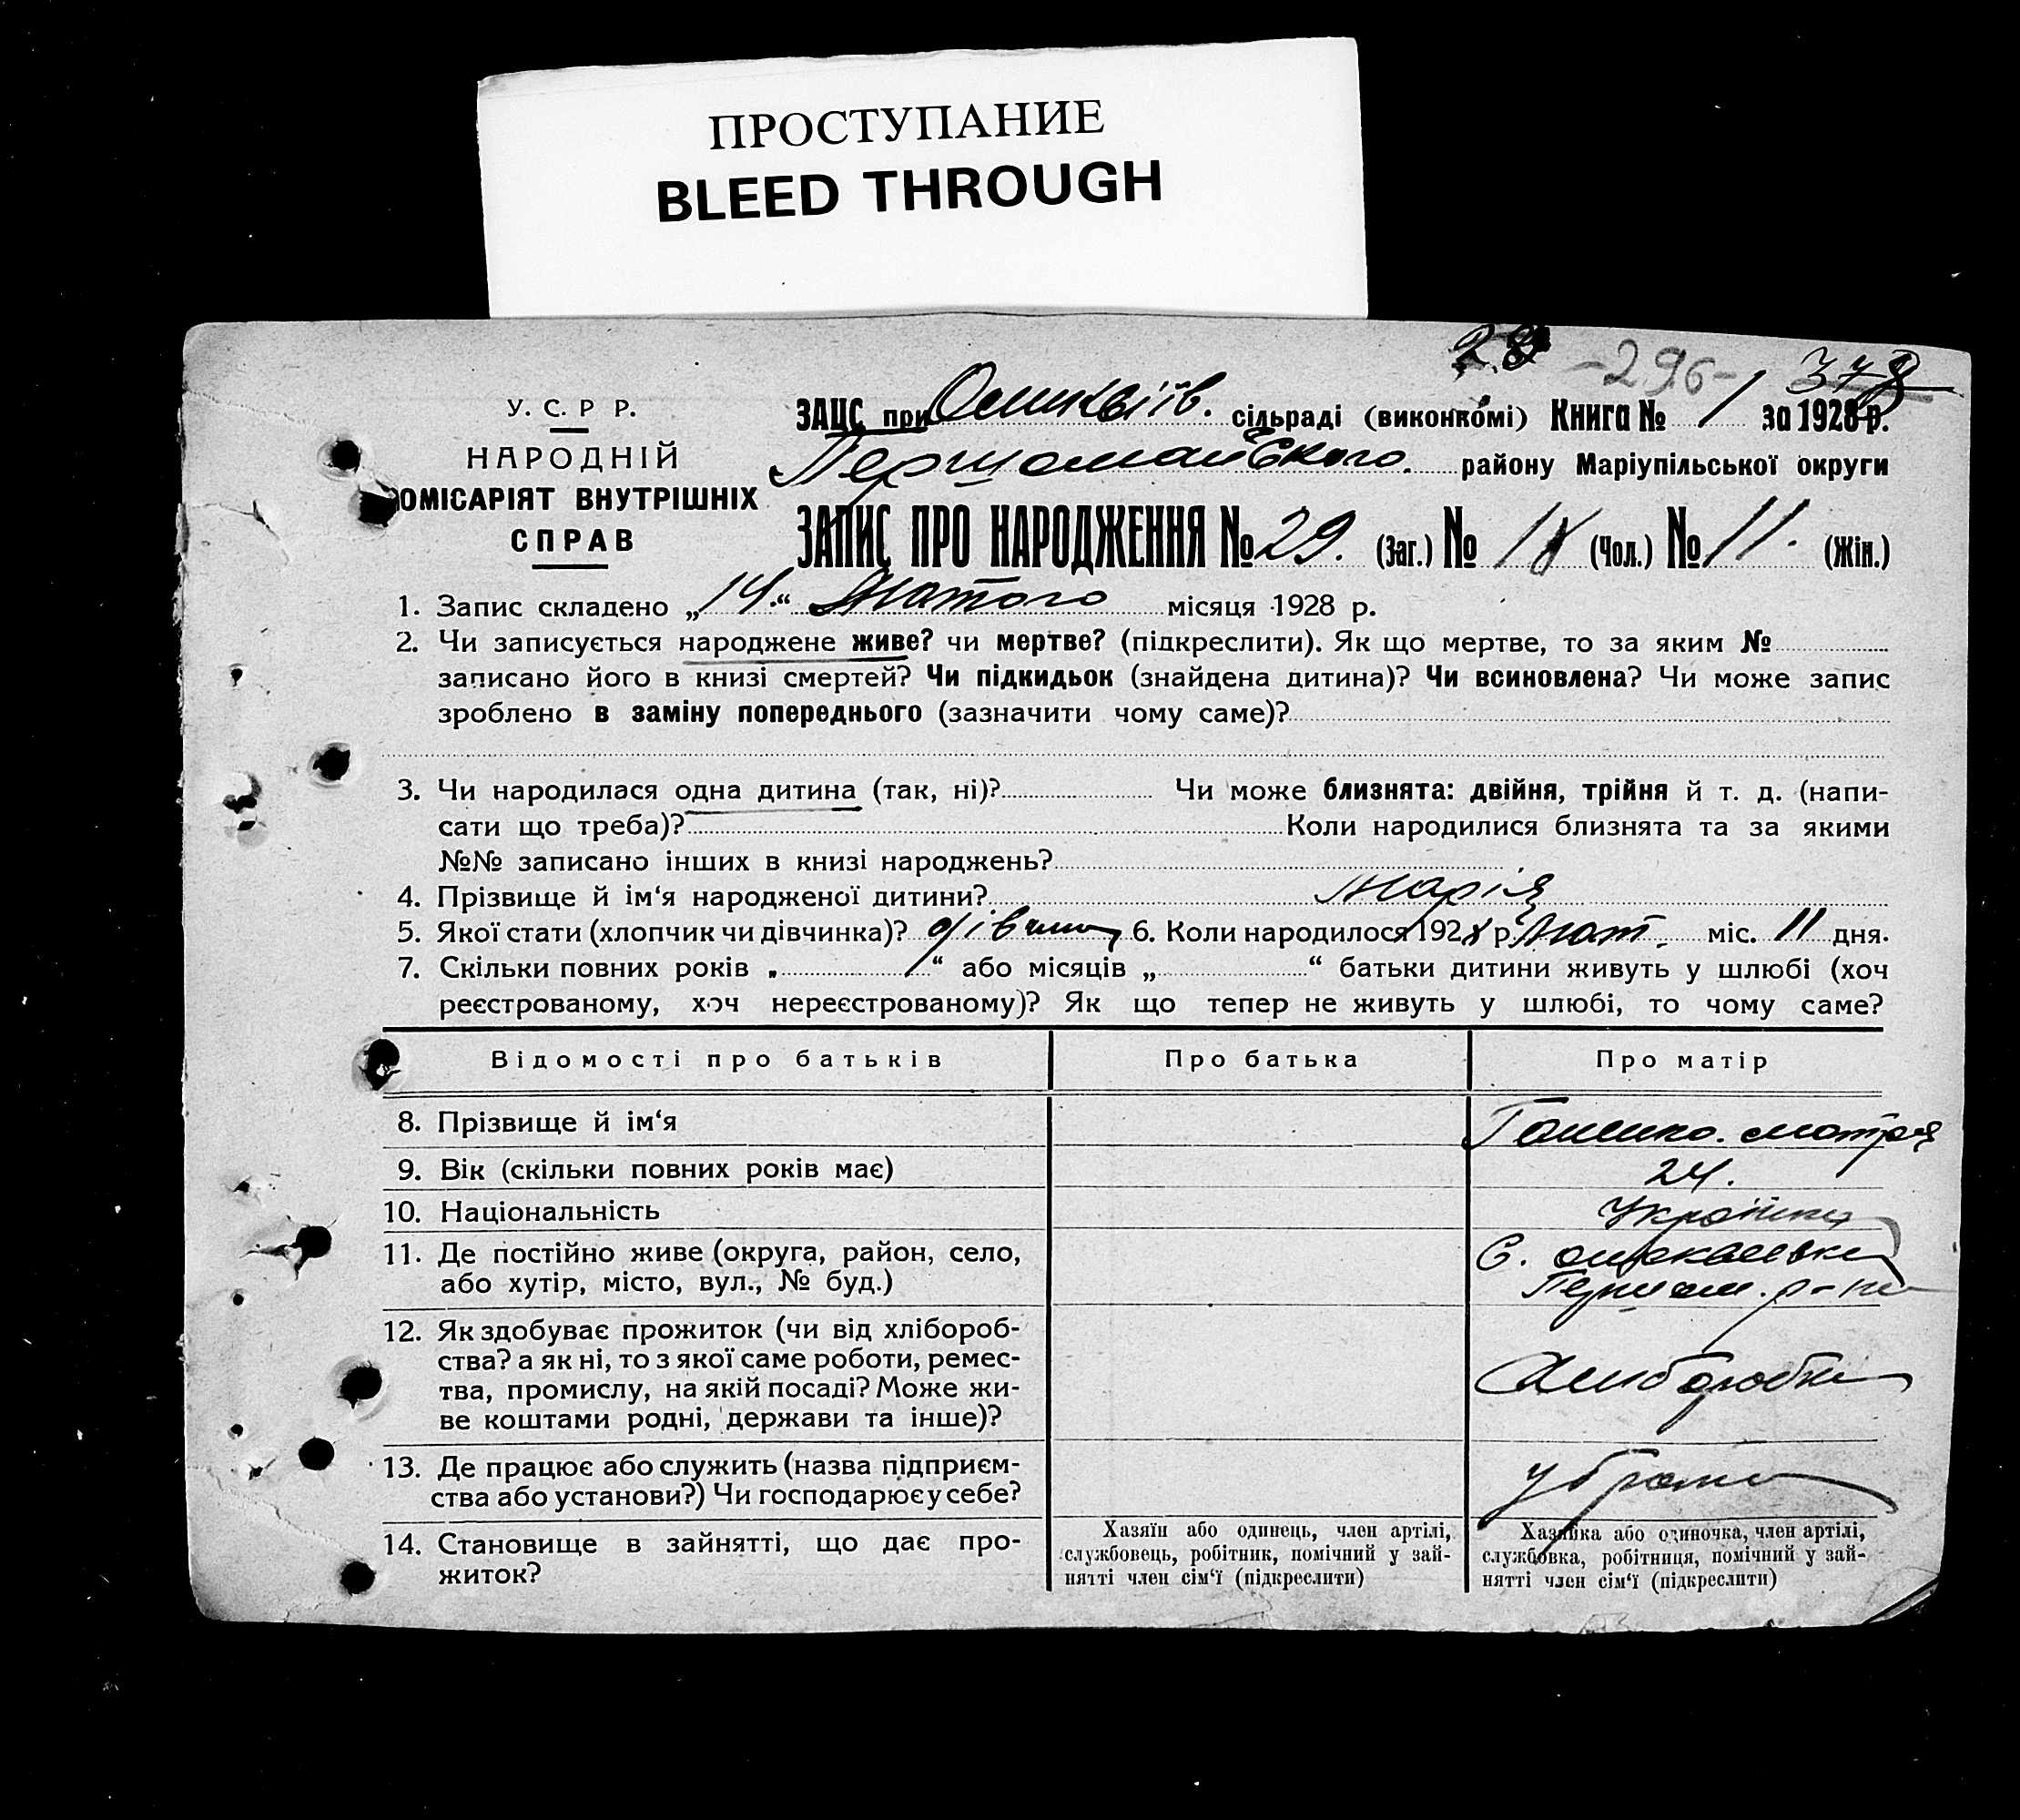 ПРОСТУПАНИЕ
BLEED THROUGH
28 -296- 378
У. С. Р Р.
НАРОДНІЙ
КОМІСАРІЯТ ВНУТРІШНІХ
СПРАВ
ЗАЦС при сільраді (виконкомі) Книга № 1 за 1928 р.
Першомайського району Маріупільської округи
ЗАПИС ПРО НАРОДЖЕННЯ № 29. (Заг.) № 18 (Чол.) № 11. (Жін.)
1. Запис складено „14“ Лютого місяця 1928 р.
2. Чи записується народжене живе? чи мертве? (підкреслити). Як що мертве, то за яким №
записано його в книзі смертей? Чи підкидьок (знайдена дитина)? Чи всиновлена? Чи може запис
зроблено в заміну попереднього (зазначити чому саме)?
3. Чи народилася одна дитина (так, ні)? Чи може близнята: двійня, трійня й т. д. (напи-
сати що треба)? Коли народилися близнята та за якими
№№ записано інших в книзі народжень?
4. Прізвище й ім‘я народженої дитини? Марія
5. Якої стати (хлопчик чи дівчинка)? дівчина 6. Коли народилося 1928 р. Лют. міс. 11 дня.
7. Скільки повних років „ “ або місяців „ “ батьки дитини живуть у шлюбі (хоч
реєстрованому, хоч нереєстрованому)? Як що тепер не живуть у шлюбі, то чому саме?
Відомості про батьків Про батька Про матір
8. Прізвище й ім‘я Мотря
9. Вік (скільки повних років має) 24.
10. Національність Українка
11. Де постійно живе (округа, район, село, С.
або хутір, місто, вул., № буд.) Першом. р-ну
12. Як здобуває прожиток (чи від хлібороб-
ства? а як ні, то з якої саме роботи, ремес-
тва, промислу, на якій посаді? Може жи-
ве коштами родні, держави та інше)?
13. Де працює або служить (назва підприєм-
ства або установи?) Чи господарює у себе?
14. Становище в зайнятті, що дає про-
житок?
Хазяїн або одинець, член артілі,
службовець, робітник, помічний у зай-
нятті член сім‘ї (підкреслити)
Хазяйка або одиночка, член артілі,
службовка, робітниця, помічний у зай-
нятті член сім‘ї (підкреслити)